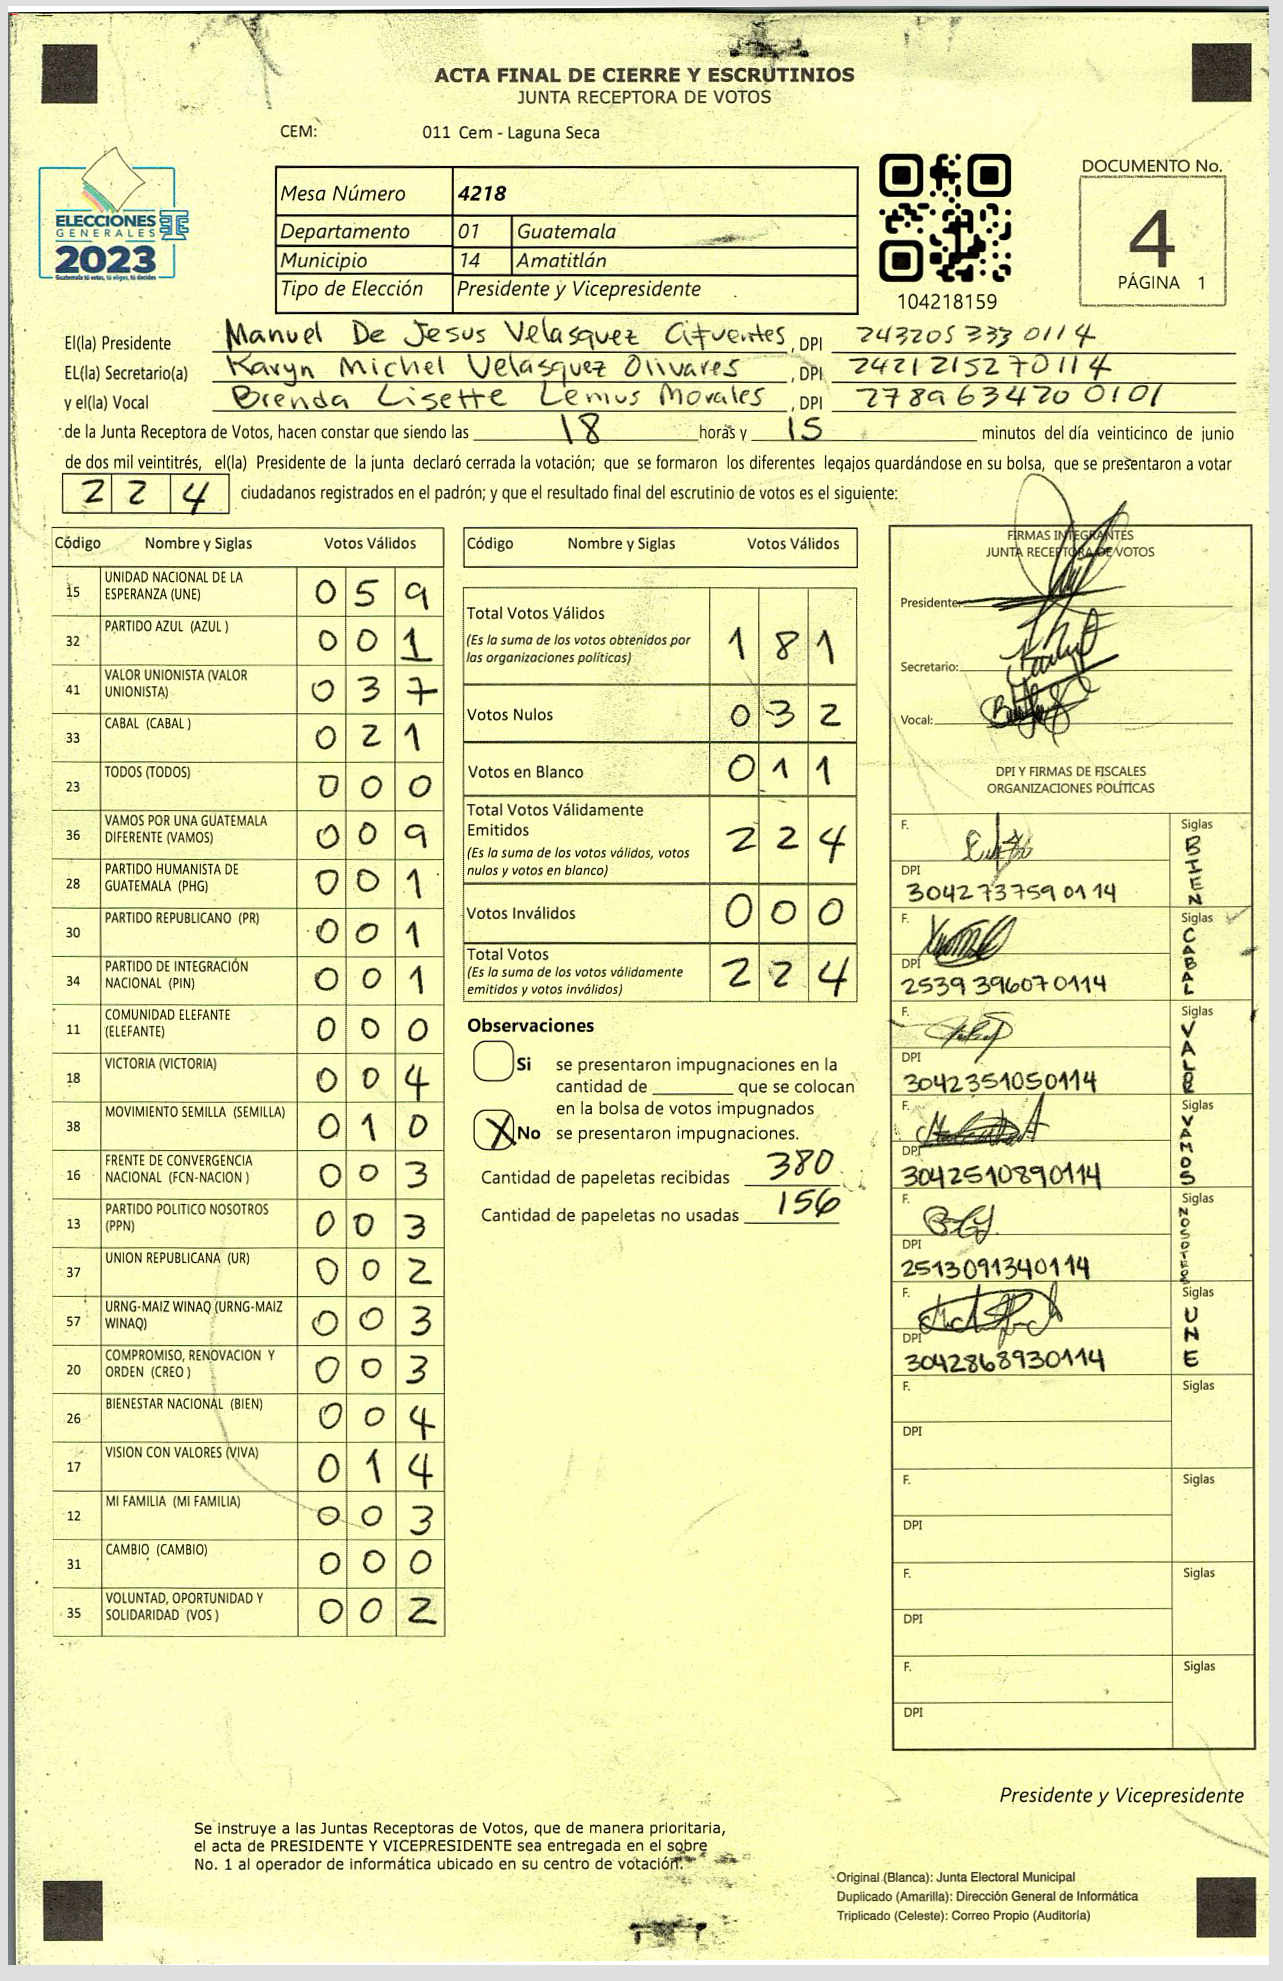 ACTA FINAL DE CIERRE Y ESCRUTINIOS
JUNTA RECEPTORA DE VOTOS
CEM: 011 Cem - Laguna Seca
ELECCIONES
GENERALES
2023
Guatemala tú votas, tú eliges, tú decides
Mesa Número 4218
Departamento 01 Guatemala
Municipio 14 Amatitlán
Tipo de Elección Presidente y Vicepresidente
104218159
DOCUMENTO No.
4
PÁGINA 1
El(la) Presidente Manuel De Jesus Velasquez Cifuentes, DPI 243205333 0114
EL(la) Secretario(a) Karyn Michel Velasquez Olivares, DPI 2421215270114
y el(la) Vocal Brenda Lisette Lemus Morales, DPI 278963420 0101
de la Junta Receptora de Votos, hacen constar que siendo las 18 horas y 15 minutos del día veinticinco de junio
de dos mil veintitrés, el(la) Presidente de la junta declaró cerrada la votación; que se formaron los diferentes legajos guardándose en su bolsa, que se presentaron a votar
224 ciudadanos registrados en el padrón; y que el resultado final del escrutinio de votos es el siguiente:
Código Nombre y Siglas Votos Válidos
15 UNIDAD NACIONAL DE LA ESPERANZA (UNE) 059
32 PARTIDO AZUL (AZUL ) 001
41 VALOR UNIONISTA (VALOR UNIONISTA) 037
33 CABAL (CABAL ) 021
23 TODOS (TODOS) 000
36 VAMOS POR UNA GUATEMALA DIFERENTE (VAMOS) 009
28 PARTIDO HUMANISTA DE GUATEMALA (PHG) 001
30 PARTIDO REPUBLICANO (PR) 001
34 PARTIDO DE INTEGRACIÓN NACIONAL (PIN) 001
11 COMUNIDAD ELEFANTE (ELEFANTE) 000
18 VICTORIA (VICTORIA) 004
38 MOVIMIENTO SEMILLA (SEMILLA) 010
16 FRENTE DE CONVERGENCIA NACIONAL (FCN-NACION ) 003
13 PARTIDO POLITICO NOSOTROS (PPN) 003
37 UNION REPUBLICANA (UR) 002
57 URNG-MAIZ WINAQ (URNG-MAIZ WINAQ) 003
20 COMPROMISO, RENOVACION Y ORDEN (CREO ) 003
26 BIENESTAR NACIONAL (BIEN) 004
17 VISION CON VALORES (VIVA) 014
12 MI FAMILIA (MI FAMILIA) 003
31 CAMBIO (CAMBIO) 000
35 VOLUNTAD, OPORTUNIDAD Y SOLIDARIDAD (VOS ) 002
Código Nombre y Siglas Votos Válidos
Total Votos Válidos 181
(Es la suma de los votos obtenidos por
las organizaciones políticas)
Votos Nulos 032
Votos en Blanco 011
Total Votos Válidamente
Emitidos 224
(Es la suma de los votos válidos, votos
nulos y votos en blanco)
Votos Inválidos 000
Total Votos 224
(Es la suma de los votos válidamente
emitidos y votos inválidos)
Observaciones
Si se presentaron impugnaciones en la
cantidad de ________ que se colocan
en la bolsa de votos impugnados
X No se presentaron impugnaciones.
Cantidad de papeletas recibidas 380
Cantidad de papeletas no usadas 156
FIRMAS INTEGRANTES
JUNTA RECEPTORA DE VOTOS
Presidente:
Secretario:
Vocal:
DPI Y FIRMAS DE FISCALES
ORGANIZACIONES POLÍTICAS
F. Siglas BIEN
DPI 3042737590114
F. Siglas CABAL
DPI 2539396070114
F. Siglas VALOR
DPI 3042351050114
F. Siglas VAMOS
DPI 3042510890114
F. Siglas NOSOTROS
DPI 2513091340114
F. Siglas UNE
DPI 3042868930114
F. Siglas
DPI
F. Siglas
DPI
F. Siglas
DPI
F. Siglas
DPI
Presidente y Vicepresidente
Se instruye a las Juntas Receptoras de Votos, que de manera prioritaria,
el acta de PRESIDENTE Y VICEPRESIDENTE sea entregada en el sobre
No. 1 al operador de informática ubicado en su centro de votación.
Original (Blanca): Junta Electoral Municipal
Duplicado (Amarilla): Dirección General de Informática
Triplicado (Celeste): Correo Propio (Auditoría)